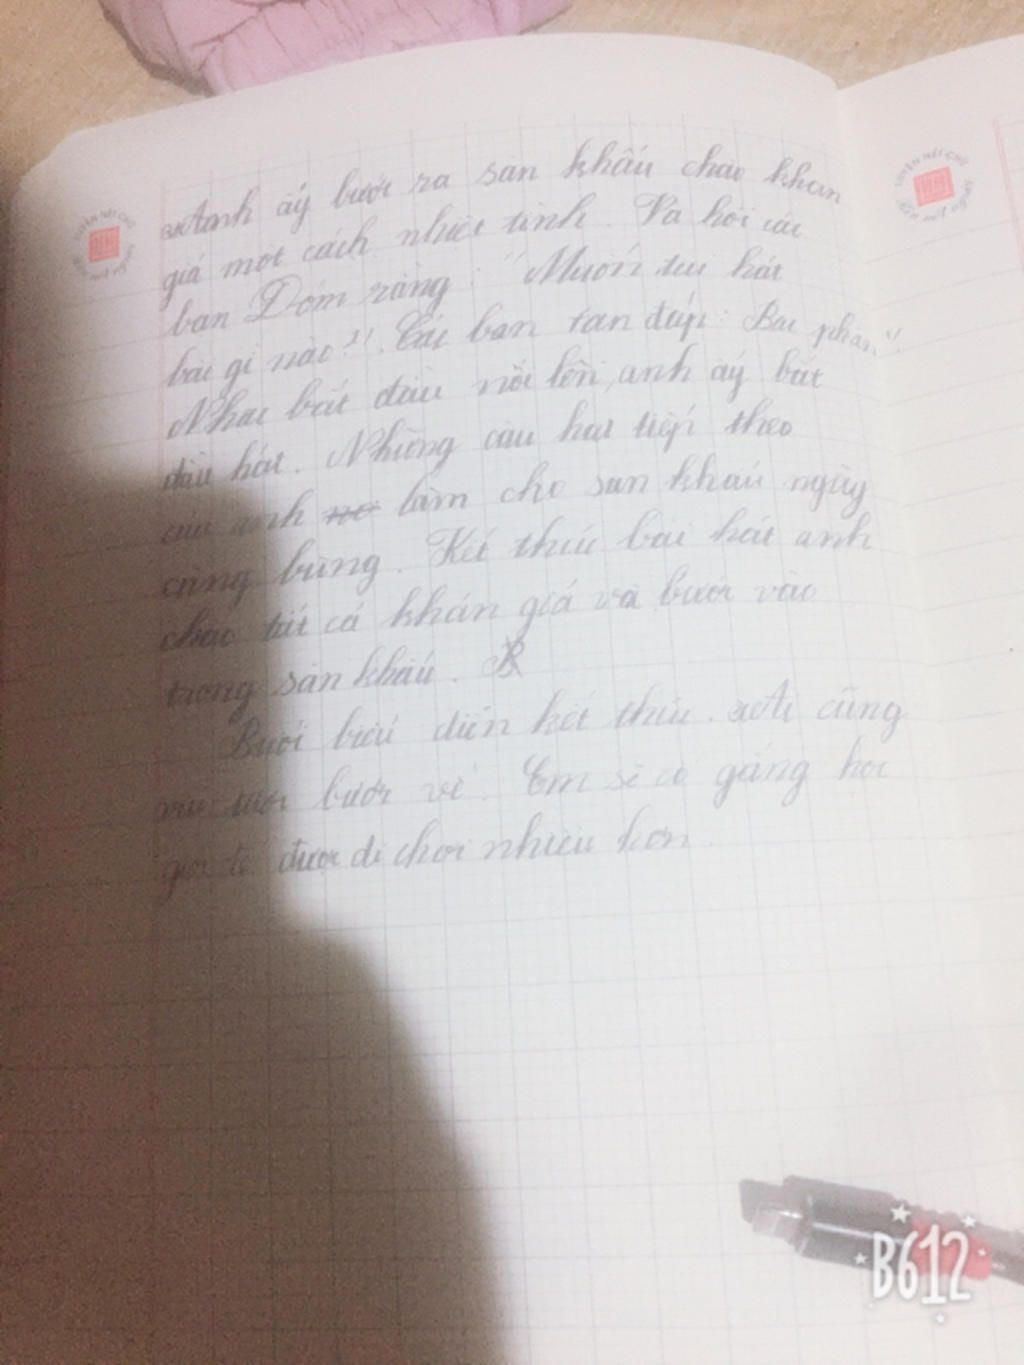 Anh ấy bước ra sân khấu chào khán
giả một cách nhiệt tình. Và hỏi các
bạn Đom rằng: "Muốn tui hát
bài gì nào?". Các bạn fan đáp: Bạc phận".
Nhạc bắt đầu nổi lên, anh ấy bắt
đầu hát. Những câu hát tiếp theo
của anh làm cho sân khấu ngày
càng bùng. Kết thúc bài hát anh
chào tất cả khán giả và bước vào
trong sân khấu.
Buổi biểu diễn kết thúc. Ai cũng
bước về. Em sẽ cố gắng học
giỏi để được đi chơi nhiều hơn
LUYỆN NÉT CHỮ
RÈN NẾT NGƯỜI
LUYỆN NÉT CHỮ
RÈN NẾT NGƯỜI
B612